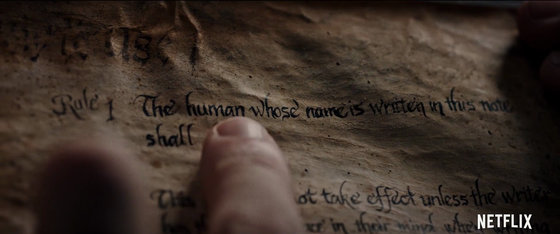 Rule 1 The human whose name is written in this note
shall
This
not take effect unless the
in their mind
NETFLIX